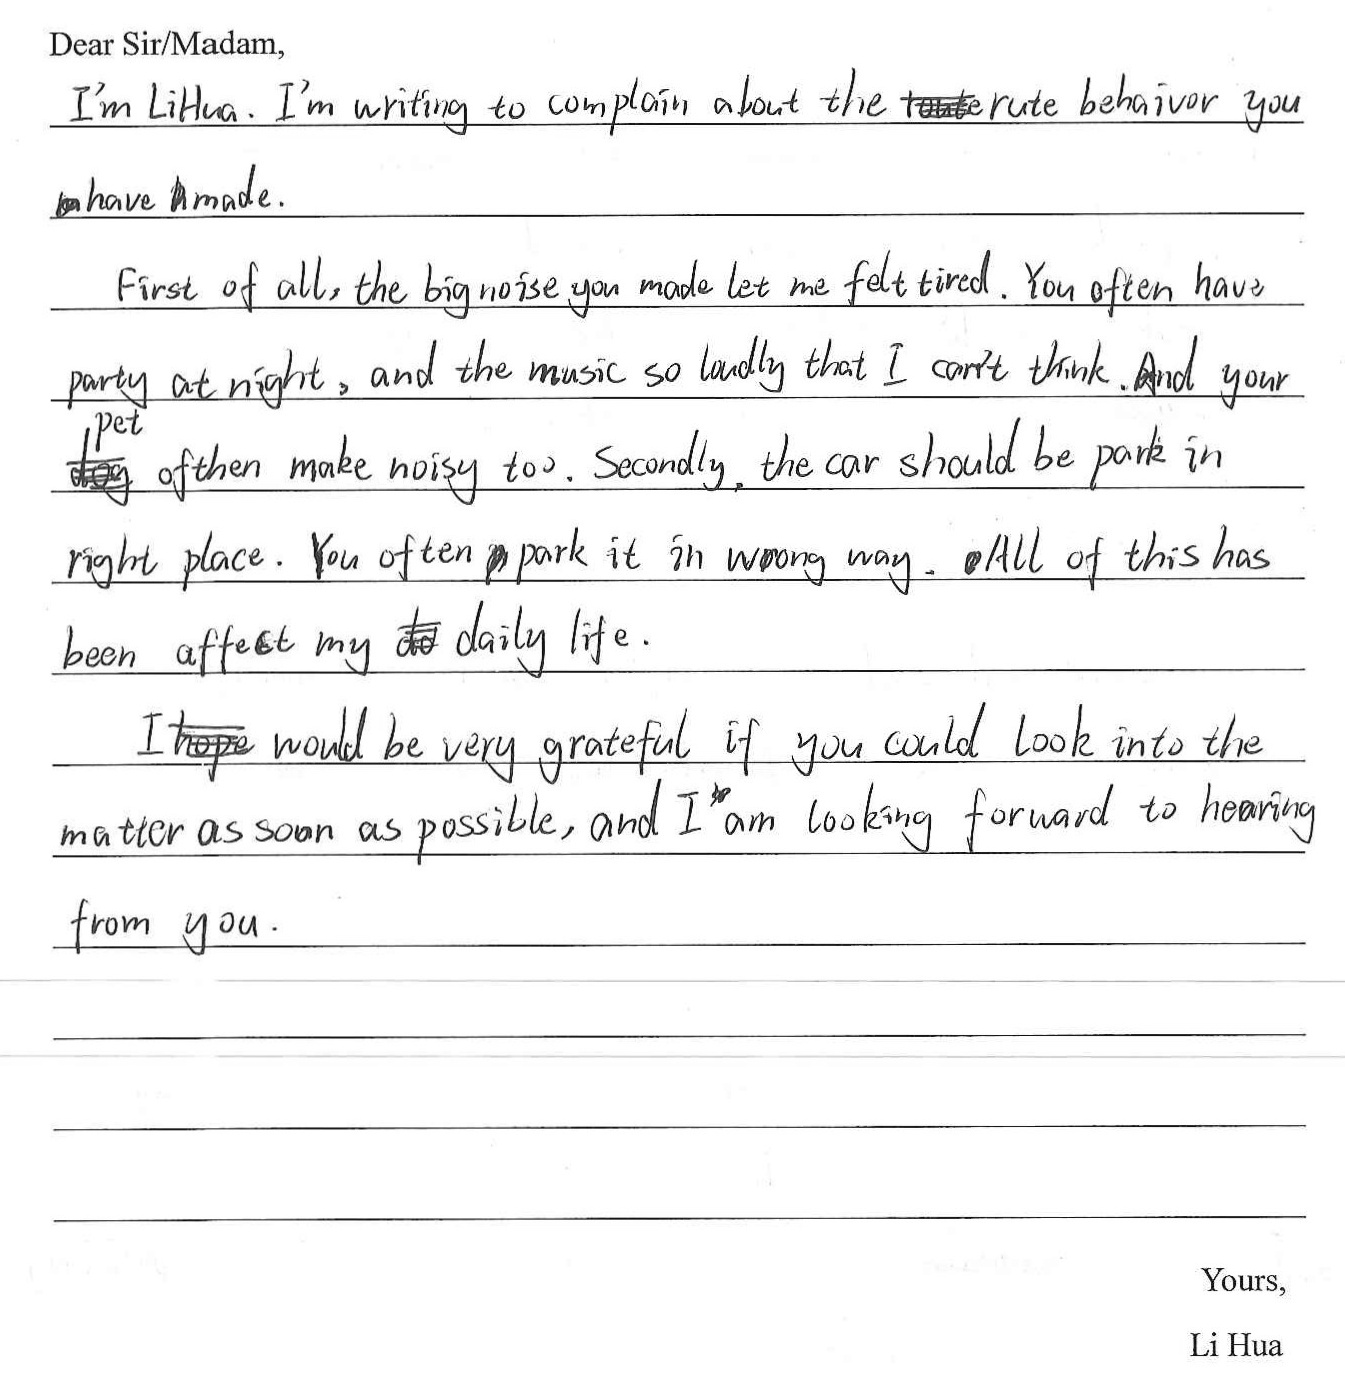 Dear Sir/Madam,
I'm LiHua. I'm writing to complain about the rute behaivor you
have made.
First of all, the big noise you made let me felt tired. You often have
party at night, and the music so loudly that I can't think. And your
pet
ofthen make noisy too. Secondly, the car should be park in
right place. You often park it in wrong way. All of this has
been affect my daily life.
I would be very grateful if you could look into the
matter as soon as possible, and I am looking forward to hearing
from you.
Yours,
Li Hua